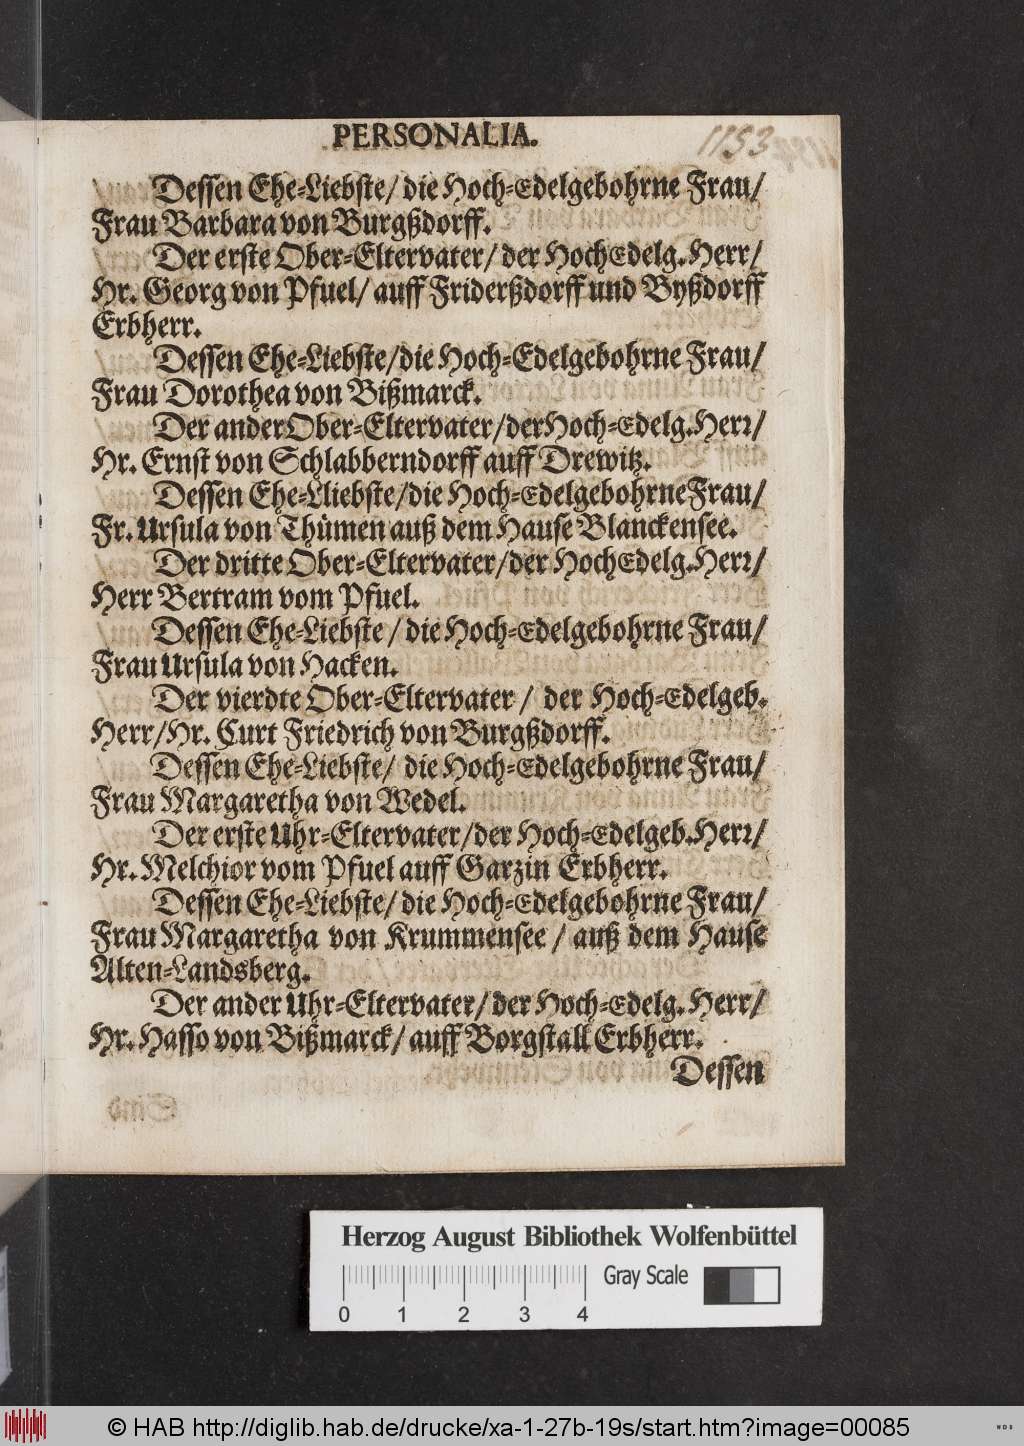 PERSONALIA.
1153
Dessen Ehe=Liebste/ die Hoch=Edelgebohrne Frau/
Frau Barbara von Burgßdorff.
Der erste Ober=Eltervater/ der HochEdelg. Herr/
Hr. Georg von Pfuel/ auff Friderßdorff und Byßdorff
Erbherr.
Dessen Ehe=Liebste/die Hoch=Edelgebohrne Frau/
Frau Dorothea von Bißmarck.
Der ander Ober=Eltervater/der Hoch=Edelg. Herr/
Hr. Ernst von Schlabberndorff auff Drewitz.
Dessen Ehe=Lliebste/die Hoch=Edelgebohrne Frau/
Fr. Ursula von Thümen auß dem Hause Blanckensee.
Der dritte Ober=Eltervater/der HochEdelg. Herr/
Herr Bertram vom Pfuel.
Dessen Ehe=Liebste / die Hoch=Edelgebohrne Frau/
Frau Ursula von Hacken.
Der vierdte Ober=Eltervater / der Hoch=Edelgeb.
Herr/Hr. Curt Friedrich von Burgßdorff.
Dessen Ehe=Liebste/ die Hoch=Edelgebohrne Frau/
Frau Margaretha von Wedel.
Der erste Uhr=Eltervater/der Hoch=Edelgeb. Herr/
Hr. Melchior vom Pfuel auff Garzin Erbherr.
Dessen Ehe=Liebste/ die Hoch=Edelgebohrne Frau/
Frau Margaretha von Krummensee / auß dem Hause
Alten=Landsberg.
Der ander Uhr=Eltervater/der Hoch=Edelg. Herr/
Hr. Hasso von Bißmarck/ auff Borgstall Erbherr.
Dessen
Herzog August Bibliothek Wolfenbüttel
Gray Scale
0 1 2 3 4
© HAB http://diglib.hab.de/drucke/xa-1-27b-19s/start.htm?image=00085